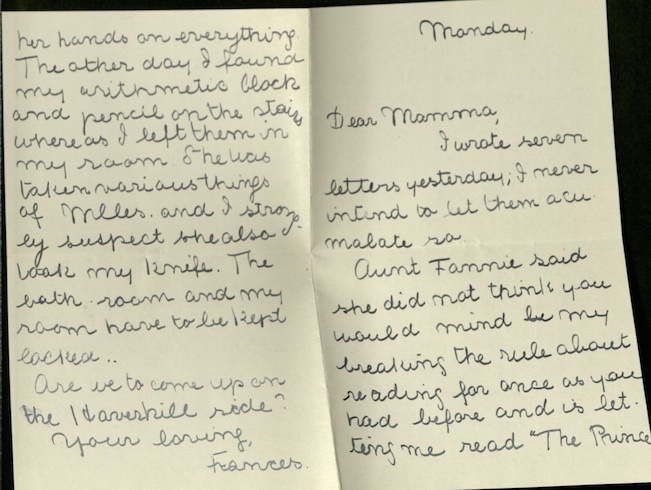 her hands on everything.
The other day I found
my arithmetic block
and pencil on the stairs
whereas I left them in
my room. She has
taken various things
of Mlles. and I strong-
ly suspect she also
took my knife. The
bath-room and my
room have to be kept
locked..
Are we to come up on
the Haverhill side?
Your loving,
Frances.
Monday.
Dear Mamma,
I wrote seven
letters yesterday; I never
intend to let them acu-
malate so.
Aunt Fannie said
she did not think you
would mind my
breaking the rule about
reading for once as you
had before and is let-
ting me read "The Prince